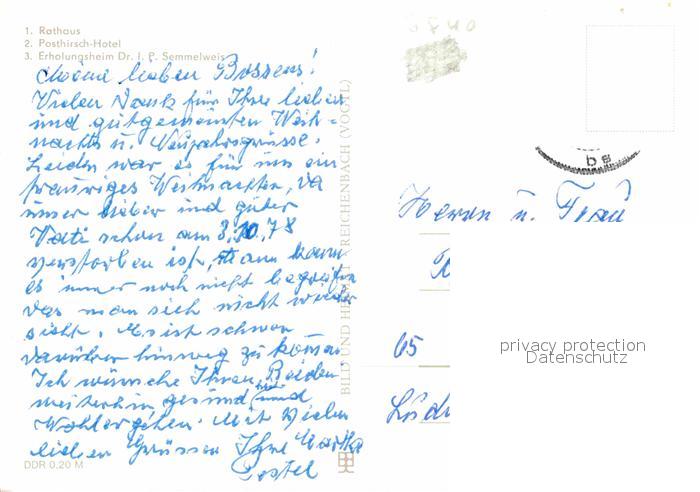 1. Rathaus
2. Posthirsch-Hotel
3. Erholungsheim Dr. I. P. Semmelweis
Meine lieben Bossens!
Vielen Dank für Ihre lieben
und gutgemeinten Weih-
nachts u. Neujahrsgrüsse.
Leider war es für uns ein
trauriges Weihnachten, da
unser lieber und guter
Vati schon am 3.10.78
verstorben ist, Man kann
es immer noch nicht begreifen
das man sich nicht wieder
sieht. Es ist schwer
darüber hinweg zu kommen
Ich wünsche Ihnen Beiden
weiterhin gesund und
Wohlergehen. Mit Vielen
lieben Grüssen Ihre
DDR 0,20 M
BILD UND HEIMAT REICHENBACH (VOGTL)
be
Herrn u. Frau
65
privacy protection
Datenschutz